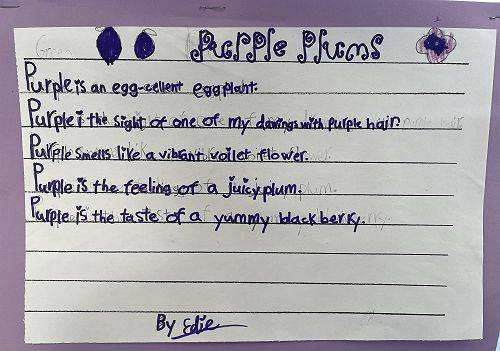 Green
Purple Plums
Purple is an egg-cellent eggplant.
Purple i the sight of one of my dawings with purple hair
Purple smells like a vibrant voilet flower.
Purple is the feeling of a juicy plum.
Purple is the taste of a yummy blackberry.
By Edie